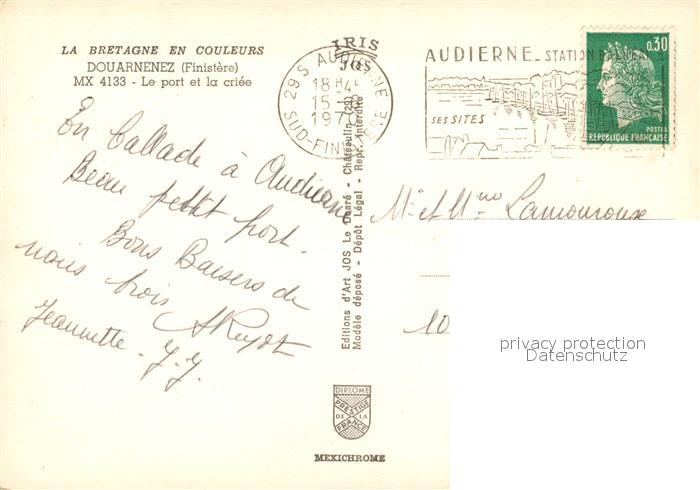 LA BRETAGNE EN COULEURS
DOUARNENEZ (Finistère)
MX 4133 - Le port et la criée
En ballade à Audierne
Beau petit port.
Bons Baisers de
nous trois
Jeannette - J.J.
IRIS
JOS
29 S AUDIERNE
18 H 45
15 -
1970
SUD-FINISTERE
AUDIERNE - STATION
SES SITES
0,30
POSTES
REPUBLIQUE FRANÇAISE
Editions d'Art JOS Le Doaré - Châteaulin (29) -
Modèle déposé - Dépôt Légal - Repr. Interdite
Mr et Mme Lamouroux
10
privacy protection
Datenschutz
DIPLOME
PRESTIGE
DE LA
FRANCE
MEXICHROME